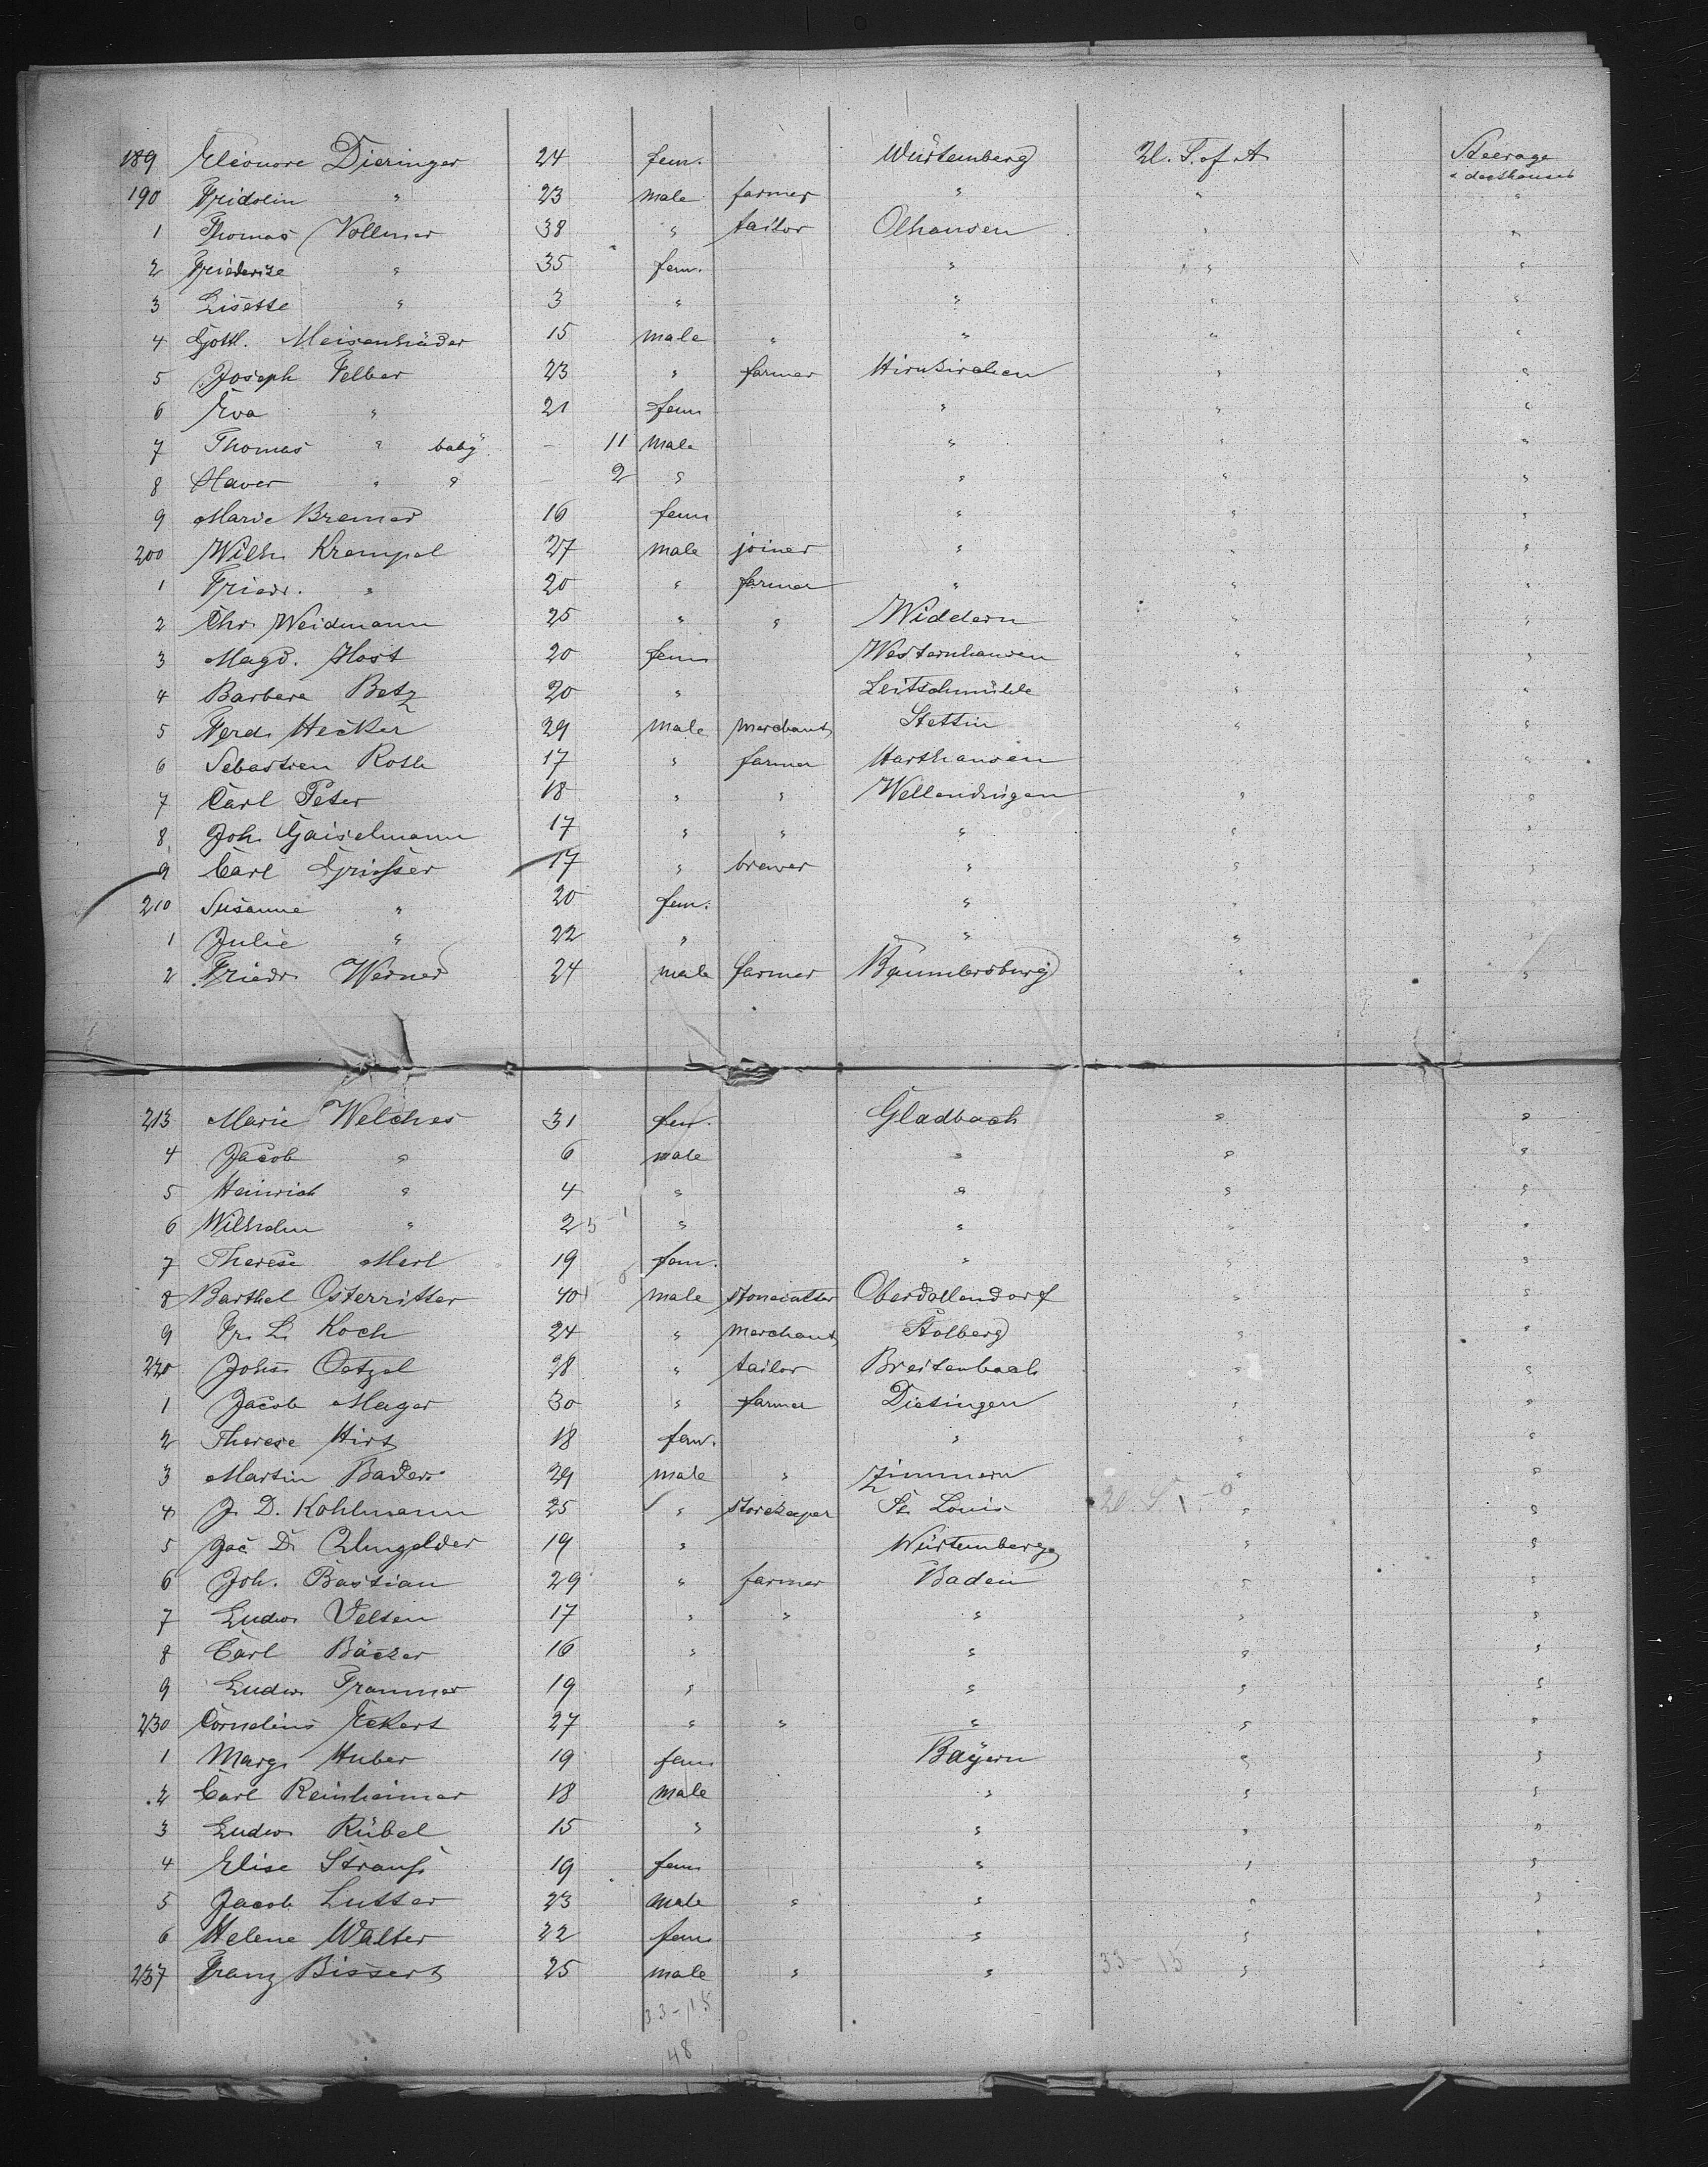 189 Eleonore Dieringer 24 fem. Würtemberg U. S. of A. Steerage
190 Fridolin " 23 male farmer " " "
1 Thomas Vollmer 38 " tailor Olhausen " "
2 Friederike " 35 fem. " " "
3 Lisette " 3 " " " "
4 Gottl. 15 male " " " "
5 Joseph Felber 23 " farmer " "
6 Eva " 21 fem " " "
7 Thomas " baby - 11 male " " "
8 Xaver " " - 2 " " " "
9 Marie Bremer 16 fem " " "
200 Wilh. Krempel 27 male joiner " " "
1 Friedr. " 20 " farmer " " "
2 Chr. Weidmann 25 " " Widdern " "
3 Magd. Host 20 fem Westernhausen " "
4 Barbara Betz 20 " Leitschmühle " "
5 Ferd. Hecker 29 male merchant Stettin " "
6 Sebastien Roth 17 " farmer Harthausen " "
7 Carl Peter 18 " " Wellendingen " "
8 Joh. Gaiselmann 17 " " " " "
9 Carl Grießer 17 " brewer " " "
210 Susanne " 20 fem. " " "
1 Julie " 22 " " " "
2 Friedr. Werner 24 male farmer Bäumlersburg " "
213 Marie Welches 31 fem. Gladbach " "
4 Jacob " 6 male " " "
5 Heinrich " 4 " " " "
6 Wilhelm " 2 " " " "
7 Therese Merl 19 fem. " " "
8 Barthel Osterritter 40 male stonecutter Oberdollendorf " "
9 Fr. L. Koch 24 " merchant Stolberg " "
220 Johs Oetzel 28 " tailor Breitenbach " "
1 Jacob Mager 30 " farmer Dietingen " "
2 Therese Hirt 18 fem. " " "
3 Martin Bader 29 male " Zimmern " "
4 J. D. Kohlmann 25 " storekeeper St. Louis " "
5 Jac. D. 19 " Würtemberg " "
6 Joh. Bastian 29 " farmer Baden " "
7 Ludw. Velten 17 " " " " "
8 Carl Bäcker 16 " " " "
9 Ludw. 19 " " " "
230 Cornelius Eckert 27 " " " " "
1 Marg. Huber 19 fem Bayern " "
2 Carl Reinheimer 18 male " " "
3 Ludw. Rübel 15 " " " "
4 Elise Strauß 19 fem " " "
5 Jacob Lutter 23 male " " " "
6 Helene Walter 22 fem " " "
237 Franz Bissert 25 male " " 33-15 " "
33-15
48